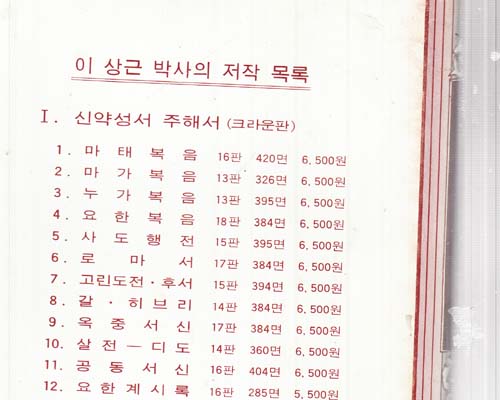 이 상근 박사의 저작 목록
I. 신약성서 주해서 (크라운판)
1. 마 태 복 음 16판 420면 6,500원
2. 마 가 복 음 13판 326면 6,500원
3. 누 가 복 음 13판 395면 6,500원
4. 요 한 복 음 18판 384면 6,500원
5. 사 도 행 전 15판 395면 6,500원
6. 로 마 서 17판 384면 6,500원
7. 고린도전·후서 15판 394면 6,500원
8. 갈 · 히브리 14판 384면 6,500원
9. 옥 중 서 신 17판 384면 6,500원
10. 살전 — 디도 14판 360면 6,500원
11. 공 동 서 신 16판 404면 6,500원
12. 요한계시록 16판 285면 5,500원